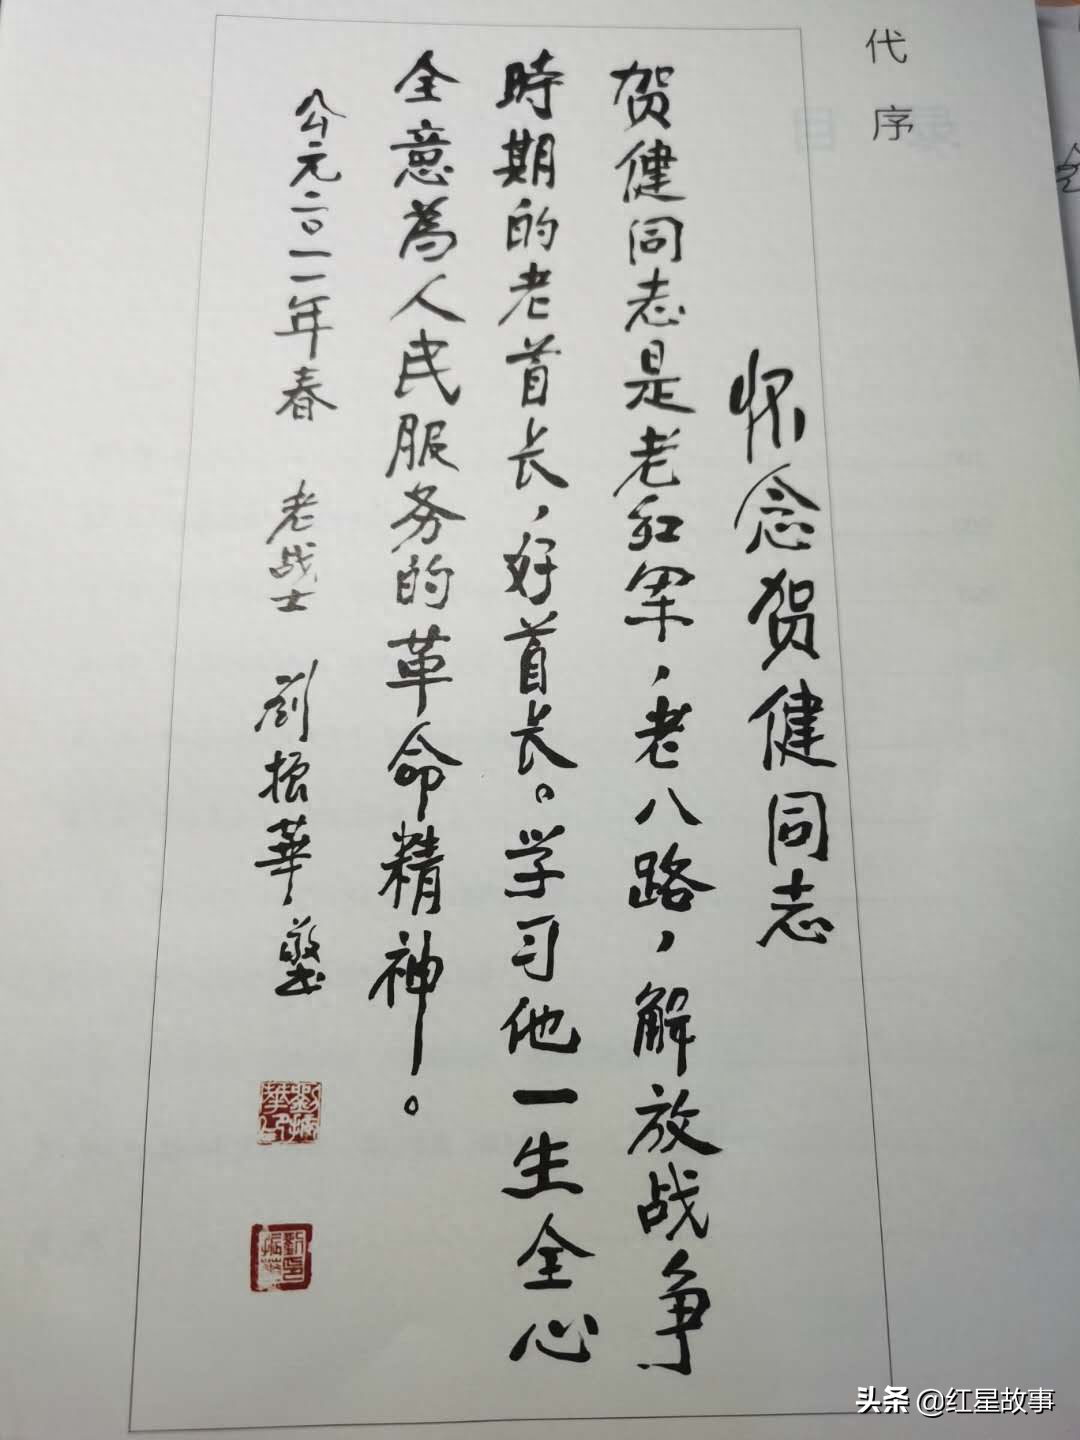 代序
怀念贺健同志
贺健同志是老红军，老八路，解放战争
時期的老首长，好首长。学习他一生全心
全意為人民服务的革命精神。
公元二〇一一年春 老战士 劉振華
头条 @红星故事